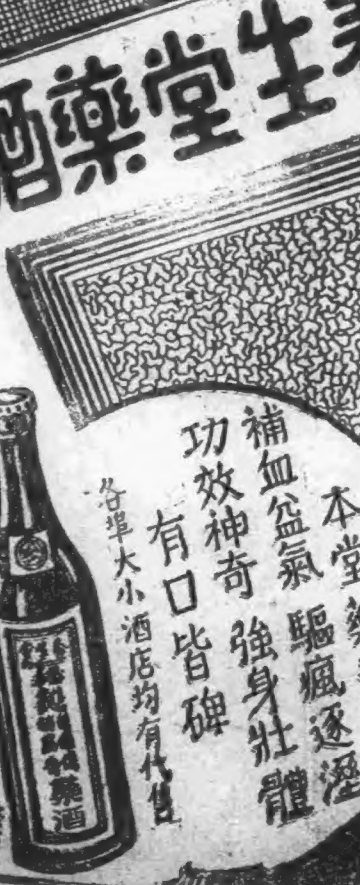 生堂藥酒
本堂藥
補血益氣 驅瘋逐溼
功效神奇 強身壯體
有口皆碑
各埠大小酒店均有代售
藥酒